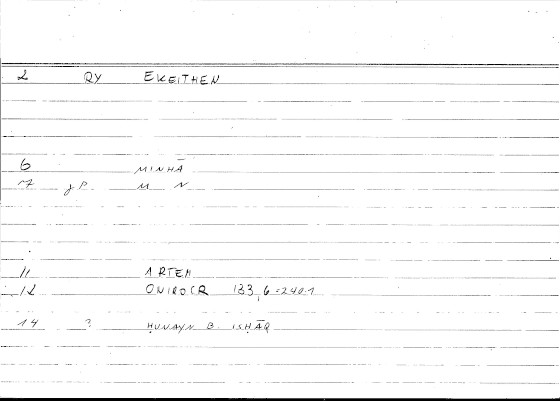 2 QY EKEITHEN
6 MINHĀ
17 gP M N
11 ARTEM
12 ONIROCR 133,6=240.1
14 ? ḤUNAYN B. ISḤĀQ